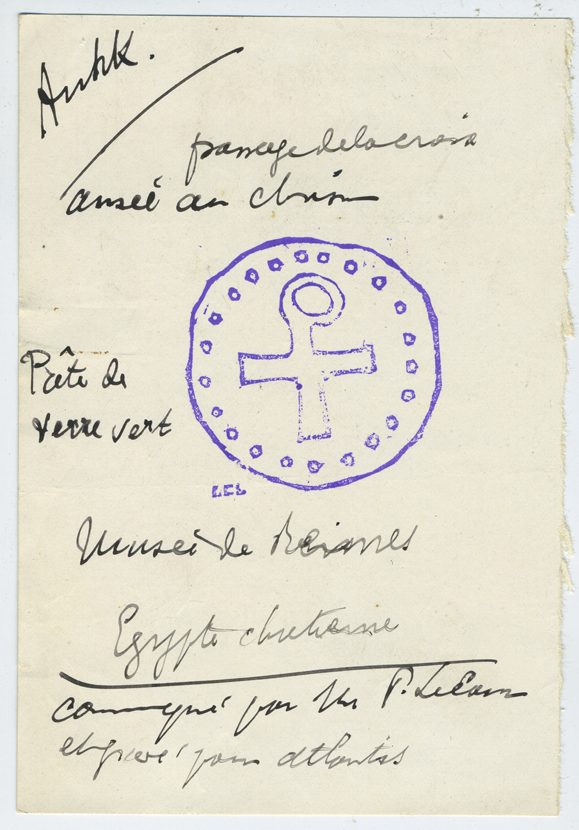 Ankk.
passage de la croix
ansée au chrisme
Pâte de
verre vert
Musée de Rennes
Egypte chretienne
communiqué par Mr P.
et gravé pour atlantis